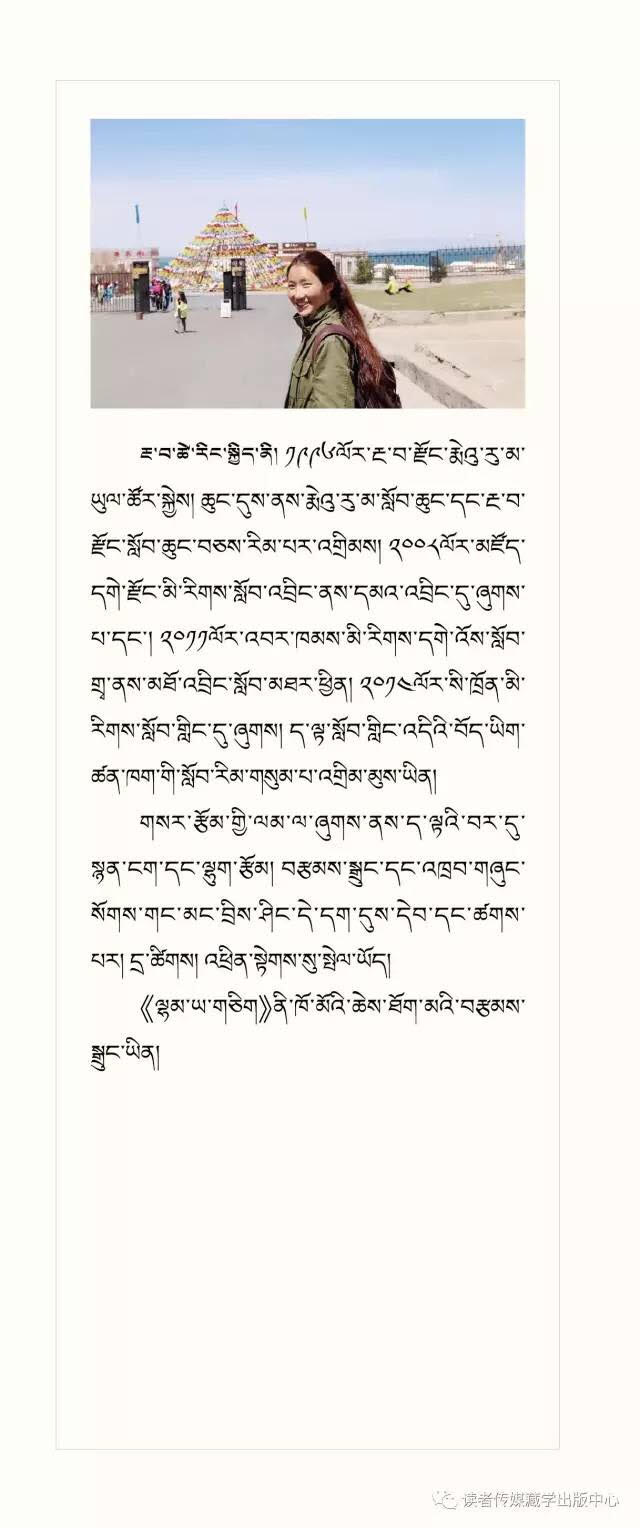 ཇ་བ་ཚེ་རིང་སྐྱིད་ནི། ༡༩༩༦ལོར་རྔ་བ་རྫོང་རྨེའུ་རུ་མ་
ཡུལ་ཚོར་སྐྱེས། ཆུང་དུས་ནས་རྨེའུ་རུ་མ་སློབ་ཆུང་དང་རྔ་བ་
རྫོང་སློབ་ཆུང་བཅས་རིམ་པར་འགྲིམས། ༢༠༠༨ལོར་མཛོད་
དགེ་རྫོང་མི་རིགས་སློབ་འབྲིང་ནས་དམའ་འབྲིང་དུ་ཞུགས་
པ་དང་། ༢༠༡༡ལོར་འབར་ཁམས་མི་རིགས་དགེ་འོས་སློབ་
གྲྭ་ནས་མཐོ་འབྲིང་སློབ་མཐར་ཕྱིན། ༢༠༡༤ལོར་སི་ཁྲོན་མི་
རིགས་སློབ་གླིང་དུ་ཞུགས། ད་ལྟ་སློབ་གླིང་འདིའི་བོད་ཡིག་
ཚན་ཁག་གི་སློབ་རིམ་གསུམ་པ་འགྲིམ་མུས་ཡིན།
གསར་རྩོམ་གྱི་ལམ་ལ་ཞུགས་ནས་ད་ལྟའི་བར་དུ་
སྙན་ངག་དང་ལྷུག་རྩོམ། བརྩམས་སྒྲུང་དང་འཁྲབ་གཞུང་
སོགས་གང་མང་བྲིས་ཤིང་དེ་དག་དུས་དེབ་དང་ཚགས་
པར། དྲ་ཚིགས། འཕྲིན་སྟེགས་སུ་སྤེལ་ཡོད།
《ལྷམ་ཡ་གཅིག》ནི་ཁོ་མོའི་ཆེས་ཐོག་མའི་བརྩམས་
སྒྲུང་ཡིན།
读者传媒藏学出版中心